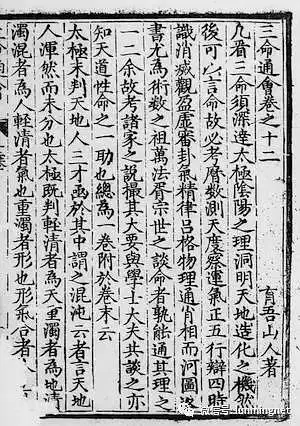 三命通會卷之十二
育吾山人著
凡看三命須深達太極陰陽之理洞明天地造化之機然
後可以言命故必考曆數測天度察運氣正五行辯四時
識消威觀盈虛審卦氣精律呂格物理通肖相而河圖洛
書尤為術數之祖萬法胥宗世之談命者孰能通其理之
一二余故考諸家之說撮其大要與學士大夫共談之亦
知天道性命之一助也總為一卷附於卷末云
太極未判天地人三才函於其中謂之混沌云者言天地
人渾然而未分也太極既判輕清者為天重濁者為地清
濁混者為人輕清者氣也重濁者形也形氣合者人
微信号: lunmingnet